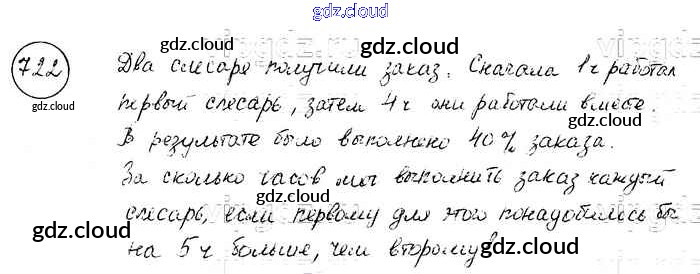 gdz.cloud
722
gdz.cloud
gdz.cloud
gdz.cloud
gdz.cloud
Два слесаря получили заказ. Сначала 1 ч работал
первый слесарь, затем 4 ч они работали вместе.
В результате было выполнено 40% заказа.
За сколько часов мог выполнить заказ каждый
слесарь, если первому для этого понадобилось бы
на 5 ч больше, чем второму?
gdz.cloud
gdz.cloud
gdz.cloud
gdz.cloud
gdz.cloud
gdz.cloud
gdz.cloud